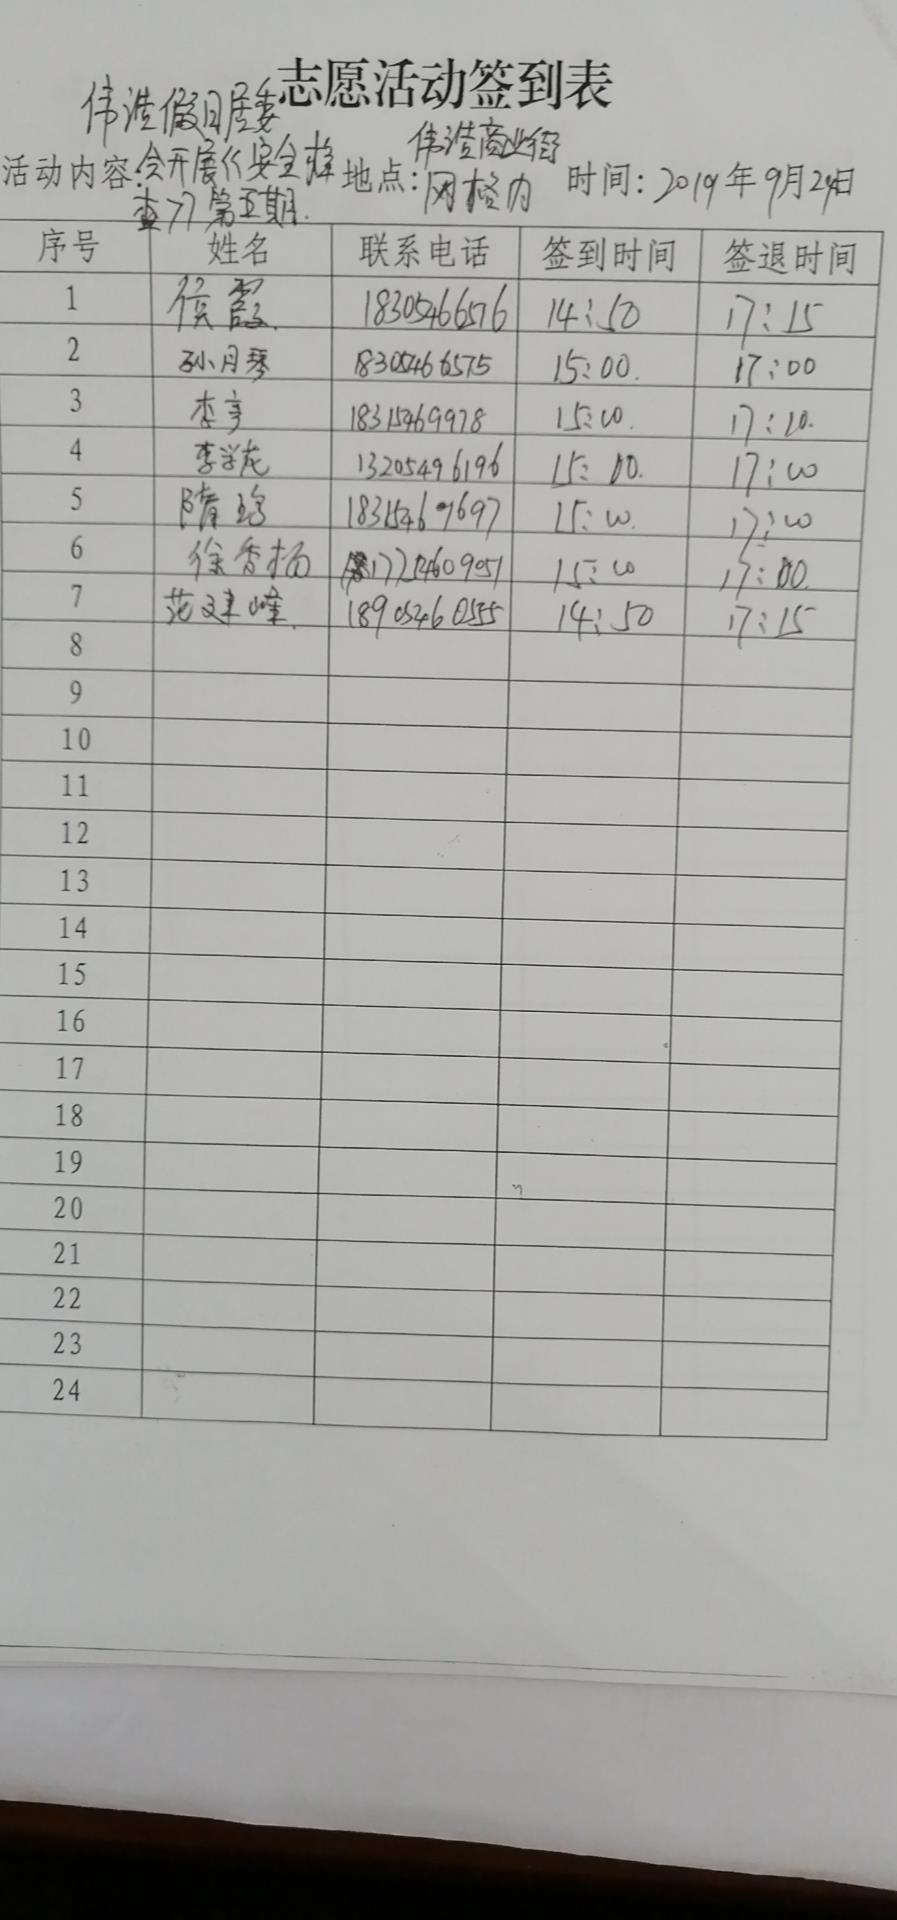 志愿活动签到表
伟浩假日居委
活动内容:会开展《安全排 地点: 伟浩商业街
查》第五期. 网格内 时间: 2019年9月24日
序号 姓名 联系电话 签到时间 签退时间
1 侯霞. 18305466576 14:50 17:15
2 孙月琴 18305466575 15:00. 17:00
3 李亨 18315469978 15:00. 17:10.
4 李学龙 13205496196 15:00. 17:00
5 隋 18315469697 15:00. 17:00
6 徐香杨 15:00 17:00.
7 范建峰. 18905460555 14:50 17:15
8
9
10
11
12
13
14
15
16
17
18
19
20
21
22
23
24